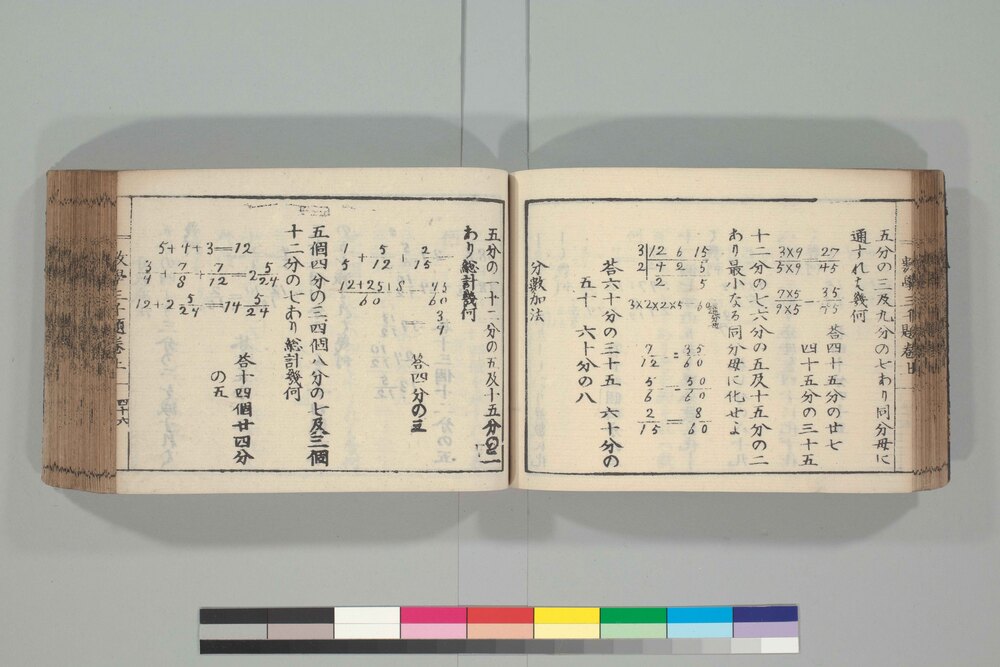 五分の三及九分の七わり同分母に
通すれは幾何
3×9/5×9 = 27/45
7×5/9×5 = 35/45
答四十五分の廿七
四十五分の三十五
十二分の七六分の五及十五分の二
あり最小なる同分母に化せよ
3 | 12 6 15
2 | 4 2 5
2 5
3×2×2×5 60
7/12 = 35/60
5/6 = 50/60
2/15 = 8/60
答六十分の三十五 六十分の
五十 六十分の八
分數加法
五分の一十二分の五及十五分の二
あり總計幾何
1/5 + 5/12 + 2/15 =
12+25+8/60 = 45/60
= 3/4
答四分の三
五個四分の三四個八分の七及三個
十二分の七わり總計幾何
5+4+3=12
3/4 + 7/8 + 7/12 = 2 5/24
12+2 5/24 = 14 5/24
答十四個廿四分
の五
四十六